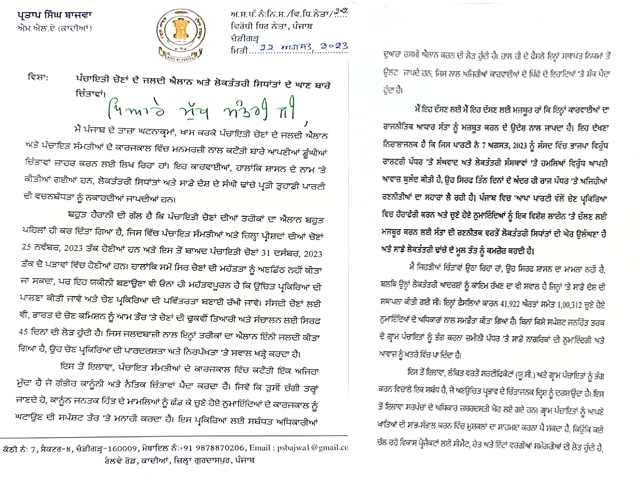 ਪ੍ਰਤਾਪ ਸਿੰਘ ਬਾਜਵਾ
ਐਮ.ਐਲ.ਏ (ਕਾਦੀਆਂ)
ਵਿਰੋਧੀ ਧਿਰ ਨੇਤਾ, ਪੰਜਾਬ
ਚੰਡੀਗੜ੍ਹ
ਮਿਤੀ 22 ਅਗਸਤ, 2023
ਵਿਸ਼ਾ: ਪੰਚਾਇਤੀ ਚੋਣਾਂ ਦੇ ਜਲਦੀ ਐਲਾਨ ਅਤੇ ਲੋਕਤੰਤਰੀ ਸਿਧਾਂਤਾਂ ਦੇ ਘਾਣ ਬਾਰੇ
ਚਿੰਤਾਵਾਂ।
ਪਿਆਰੇ ਮੁੱਖ ਮੰਤਰੀ ਜੀ,
ਮੈਂ ਪੰਜਾਬ ਦੇ ਤਾਜ਼ਾ ਘਟਨਾਕ੍ਰਮਾਂ, ਖਾਸ ਕਰਕੇ ਪੰਚਾਇਤੀ ਚੋਣਾਂ ਦੇ ਜਲਦੀ ਐਲਾਨ
ਅਤੇ ਪੰਚਾਇਤ ਸੰਮਤੀਆਂ ਦੇ ਕਾਰਜਕਾਲ ਵਿੱਚ ਮਨਮਰਜ਼ੀ ਨਾਲ ਕਟੌਤੀ ਬਾਰੇ ਆਪਣੀਆਂ ਡੂੰਘੀਆਂ
ਚਿੰਤਾਵਾਂ ਜ਼ਾਹਰ ਕਰਨ ਲਈ ਲਿਖ ਰਿਹਾ ਹਾਂ। ਇਹ ਕਾਰਵਾਈਆਂ, ਹਾਲਾਂਕਿ ਸ਼ਾਸਨ ਦੇ ਨਾਮ 'ਤੇ
ਕੀਤੀਆਂ ਗਈਆਂ ਹਨ, ਲੋਕਤੰਤਰੀ ਸਿਧਾਂਤਾਂ ਅਤੇ ਸਾਡੇ ਦੇਸ਼ ਦੇ ਸੰਘੀ ਢਾਂਚੇ ਪ੍ਰਤੀ ਤੁਹਾਡੀ ਪਾਰਟੀ
ਦੀ ਵਚਨਬੱਧਤਾ ਨੂੰ ਨਕਾਰਦੀਆਂ ਜਾਪਦੀਆਂ ਹਨ।
ਬਹੁਤ ਹੈਰਾਨੀ ਦੀ ਗੱਲ ਹੈ ਕਿ ਪੰਚਾਇਤੀ ਚੋਣਾਂ ਦੀਆਂ ਤਰੀਕਾਂ ਦਾ ਐਲਾਨ ਬਹੁਤ
ਪਹਿਲਾਂ ਹੀ ਕਰ ਦਿੱਤਾ ਗਿਆ ਹੈ, ਜਿਸ ਵਿੱਚ ਪੰਚਾਇਤ ਸੰਮਤੀਆਂ ਅਤੇ ਜ਼ਿਲ੍ਹਾ ਪ੍ਰੀਸ਼ਦਾਂ ਦੀਆਂ ਚੋਣਾਂ
25 ਨਵੰਬਰ, 2023 ਤੱਕ ਹੋਣੀਆਂ ਹਨ ਅਤੇ ਇਸ ਤੋਂ ਬਾਅਦ ਪੰਚਾਇਤੀ ਚੋਣਾਂ 31 ਦਸੰਬਰ, 2023
ਤੱਕ ਦੇ ਪੜਾਵਾਂ ਵਿੱਚ ਹੋਣੀਆਂ ਹਨ। ਹਾਲਾਂਕਿ ਸਮੇਂ ਸਿਰ ਚੋਣਾਂ ਦੀ ਮਹੱਤਤਾ ਨੂੰ ਅਣਡਿੱਠ ਨਹੀਂ ਕੀਤਾ
ਜਾ ਸਕਦਾ, ਪਰ ਇਹ ਯਕੀਨੀ ਬਣਾਉਣਾ ਵੀ ਓਨਾ ਹੀ ਮਹੱਤਵਪੂਰਨ ਹੈ ਕਿ ਉਚਿਤ ਪ੍ਰਕਿਰਿਆ ਦੀ
ਪਾਲਣਾ ਕੀਤੀ ਜਾਵੇ ਅਤੇ ਚੋਣ ਪ੍ਰਕਿਰਿਆ ਦੀ ਪਵਿੱਤਰਤਾ ਬਣਾਈ ਰੱਖੀ ਜਾਵੇ। ਸੰਸਦੀ ਚੋਣਾਂ ਲਈ
ਵੀ, ਭਾਰਤ ਦੇ ਚੋਣ ਕਮਿਸ਼ਨ ਨੂੰ ਆਮ ਤੌਰ 'ਤੇ ਚੋਣਾਂ ਦੀ ਢੁਕਵੀਂ ਤਿਆਰੀ ਅਤੇ ਸੰਚਾਲਨ ਲਈ ਸਿਰਫ਼
45 ਦਿਨਾਂ ਦੀ ਲੋੜ ਹੁੰਦੀ ਹੈ। ਜਿਸ ਜਲਦਬਾਜ਼ੀ ਨਾਲ ਇਨ੍ਹਾਂ ਤਰੀਕਾਂ ਦਾ ਐਲਾਨ ਇੰਨੀ ਜਲਦੀ ਕੀਤਾ
ਗਿਆ ਹੈ, ਉਹ ਚੋਣ ਪ੍ਰਕਿਰਿਆ ਦੀ ਪਾਰਦਰਸ਼ਤਾ ਅਤੇ ਨਿਰਪੱਖਤਾ 'ਤੇ ਸਵਾਲ ਖੜ੍ਹੇ ਕਰਦਾ ਹੈ।
ਇਸ ਤੋਂ ਇਲਾਵਾ, ਪੰਚਾਇਤ ਸੰਮਤੀਆਂ ਦੇ ਕਾਰਜਕਾਲ ਵਿੱਚ ਕਟੌਤੀ ਇੱਕ ਅਜਿਹਾ
ਮੁੱਦਾ ਹੈ ਜੋ ਗੰਭੀਰ ਕਾਨੂੰਨੀ ਅਤੇ ਨੈਤਿਕ ਚਿੰਤਾਵਾਂ ਪੈਦਾ ਕਰਦਾ ਹੈ। ਜਿਵੇਂ ਕਿ ਤੁਸੀਂ ਚੰਗੀ ਤਰ੍ਹਾਂ
ਜਾਣਦੇ ਹੋ, ਕਾਨੂੰਨ ਜਨਤਕ ਹਿੱਤ ਦੇ ਮਾਮਲਿਆਂ ਨੂੰ ਛੱਡ ਕੇ ਚੁਣੇ ਹੋਏ ਨੁਮਾਇੰਦਿਆਂ ਦੇ ਕਾਰਜਕਾਲ ਨੂੰ
ਘਟਾਉਣ ਦੀ ਸਪੱਸ਼ਟ ਤੌਰ 'ਤੇ ਮਨਾਹੀ ਕਰਦਾ ਹੈ। ਇਸ ਪ੍ਰਕਿਰਿਆ ਲਈ ਸਬੰਧਤ ਅਧਿਕਾਰੀਆਂ
ਕੋਠੀ ਨੰ: 7, ਸੈਕਟਰ-8, ਚੰਡੀਗੜ੍ਹ-160009, ਮੋਬਾਇਲ ਨੰ:+91 9878870206, Email : psbajwa1@gmail.co
ਰੇਲਵੇ ਰੋਡ, ਕਾਦੀਆਂ, ਜ਼ਿਲ੍ਹਾ ਗੁਰਦਾਸਪੁਰ, ਪੰਜਾਬ
ਦੁਆਰਾ ਰਸਮੀ ਐਲਾਨ ਕਰਨ ਦੀ ਲੋੜ ਹੁੰਦੀ ਹੈ। ਹਾਲ ਹੀ ਦੇ ਫੈਸਲੇ ਇਨ੍ਹਾਂ ਸਥਾਪਤ ਨਿਯਮਾਂ ਤੋਂ
ਉਲਟ ਜਾਪਦੇ ਹਨ, ਜਿਸ ਨਾਲ ਅਜਿਹੀਆਂ ਕਾਰਵਾਈਆਂ ਦੇ ਪਿੱਛੇ ਦੇ ਇਰਾਦਿਆਂ 'ਤੇ ਸ਼ੱਕ ਪੈਦਾ
ਹੁੰਦਾ ਹੈ।
ਮੈਂ ਇਹ ਦੱਸਣ ਲਈ ਮਜਬੂਰ ਹਾਂ ਕਿ ਇਨ੍ਹਾਂ ਕਾਰਵਾਈਆਂ ਦਾ
ਰਾਜਨੀਤਿਕ ਆਧਾਰ ਸੱਤਾ ਨੂੰ ਮਜ਼ਬੂਤ ਕਰਨ ਦੇ ਉਦੇਸ਼ ਨਾਲ ਜਾਪਦਾ ਹੈ। ਇਹ ਦੇਖਣਾ
ਨਿਰਾਸ਼ਾਜਨਕ ਹੈ ਕਿ ਜਿਸ ਪਾਰਟੀ ਨੇ 7 ਅਗਸਤ, 2023 ਨੂੰ ਸੰਸਦ ਵਿੱਚ ਭਾਜਪਾ ਵਿਰੁੱਧ
ਰਾਸ਼ਟਰੀ ਪੱਧਰ 'ਤੇ ਸੰਘਵਾਦ ਅਤੇ ਲੋਕਤੰਤਰੀ ਸੰਸਥਾਵਾਂ 'ਤੇ ਹਮਲਿਆਂ ਵਿਰੁੱਧ ਆਪਣੀ
ਆਵਾਜ਼ ਬੁਲੰਦ ਕੀਤੀ ਹੈ, ਉਹ ਸਿਰਫ਼ ਤਿੰਨ ਦਿਨਾਂ ਦੇ ਅੰਦਰ ਹੀ ਰਾਜ ਪੱਧਰ 'ਤੇ ਅਜਿਹੀਆਂ
ਰਣਨੀਤੀਆਂ ਦਾ ਸਹਾਰਾ ਲੈ ਰਹੀ ਹੈ। ਪੰਜਾਬ ਵਿੱਚ 'ਆਪ' ਪਾਰਟੀ ਵੱਲੋਂ ਚੋਣ ਪ੍ਰਕਿਰਿਆ
ਵਿੱਚ ਹੇਰਾਫੇਰੀ ਕਰਨ ਅਤੇ ਚੁਣੇ ਹੋਏ ਨੁਮਾਇੰਦਿਆਂ ਨੂੰ ਇੱਕ ਵਿਸ਼ੇਸ਼ ਲਾਈਨ 'ਤੇ ਚੱਲਣ ਲਈ
ਮਜਬੂਰ ਕਰਨ ਲਈ ਸੱਤਾ ਦੀ ਰਣਨੀਤਕ ਵਰਤੋਂ ਲੋਕਤੰਤਰੀ ਸਿਧਾਂਤਾਂ ਦੀ ਘੋਰ ਉਲੰਘਣਾ
ਹੈ ਅਤੇ ਸਾਡੇ ਲੋਕਤੰਤਰੀ ਢਾਂਚੇ ਦੇ ਮੂਲ ਤੱਤ ਨੂੰ ਕਮਜ਼ੋਰ ਕਰਦੀ ਹੈ।
ਮੈਂ ਜਿਹੜੀਆਂ ਚਿੰਤਾਵਾਂ ਉਠਾ ਰਿਹਾ ਹਾਂ, ਉਹ ਸਿਰਫ਼ ਸ਼ਾਸਨ ਦਾ ਮਾਮਲਾ ਨਹੀਂ ਹੈ,
ਬਲਕਿ ਉਨ੍ਹਾਂ ਲੋਕਤੰਤਰੀ ਆਦਰਸ਼ਾਂ ਨੂੰ ਕਾਇਮ ਰੱਖਣ ਦਾ ਵੀ ਸਵਾਲ ਹੈ ਜਿਨ੍ਹਾਂ 'ਤੇ ਸਾਡੇ ਦੇਸ਼ ਦੀ
ਸਥਾਪਨਾ ਕੀਤੀ ਗਈ ਸੀ। ਇਨ੍ਹਾਂ ਫੈਸਲਿਆਂ ਕਾਰਨ 41,922 ਔਰਤਾਂ ਸਮੇਤ 1,00,312 ਚੁਣੇ ਹੋਏ
ਨੁਮਾਇੰਦਿਆਂ ਦੇ ਅਧਿਕਾਰਾਂ ਨਾਲ ਸਮਝੌਤਾ ਕੀਤਾ ਗਿਆ ਹੈ। ਬਿਨਾਂ ਕਿਸੇ ਸਪੱਸ਼ਟ ਜਨਹਿੱਤ ਤਰਕ
ਦੇ ਗ੍ਰਾਮ ਪੰਚਾਇਤਾਂ ਨੂੰ ਭੰਗ ਕਰਨਾ ਜ਼ਮੀਨੀ ਪੱਧਰ 'ਤੇ ਸਾਡੇ ਨਾਗਰਿਕਾਂ ਦੀ ਨੁਮਾਇੰਦਗੀ ਅਤੇ
ਆਵਾਜ਼ ਨੂੰ ਖਤਰੇ ਵਿੱਚ ਪਾ ਦਿੰਦਾ ਹੈ।
ਇਸ ਤੋਂ ਇਲਾਵਾ, ਲੰਬਿਤ ਵਰਤੋਂ ਸਰਟੀਫਿਕੇਟਾਂ (ਯੂ.ਸੀ.) ਅਤੇ ਗ੍ਰਾਮ ਪੰਚਾਇਤਾਂ ਨੂੰ ਭੰਗ
ਕਰਨ ਵਿਚਾਲੇ ਇਕ ਸਬੰਧ ਹੈ, ਜੋ ਅਣਉਚਿਤ ਪ੍ਰਭਾਵ ਦੇ ਚਿੰਤਾਜਨਕ ਦ੍ਰਿਸ਼ ਨੂੰ ਦਰਸਾਉਂਦਾ ਹੈ। ਇਸ
ਤੋਂ ਇਲਾਵਾ ਸਰਪੰਚਾਂ ਦੇ ਅਧਿਕਾਰ ਜ਼ਬਰਦਸਤੀ ਖੋਹ ਲਏ ਗਏ ਹਨ। ਗ੍ਰਾਮ ਪੰਚਾਇਤਾਂ ਨੂੰ ਆਪਣੇ
ਖਾਤਿਆਂ ਦੀ ਸਾਂਭ-ਸੰਭਾਲ ਕਰਨ ਵਿੱਚ ਮੁਸ਼ਕਲਾਂ ਦਾ ਸਾਹਮਣਾ ਕਰਨਾ ਪੈ ਸਕਦਾ ਹੈ, ਕਿਉਂਕਿ ਕਈ
ਚੱਲ ਰਹੇ ਵਿਕਾਸ ਪ੍ਰੋਜੈਕਟਾਂ ਲਈ ਸੀਮੈਂਟ, ਰੇਤ ਅਤੇ ਇੱਟਾਂ ਵਰਗੀਆਂ ਸਮੱਗਰੀਆਂ ਦੀ ਲੋੜ ਹੁੰਦੀ ਹੈ,